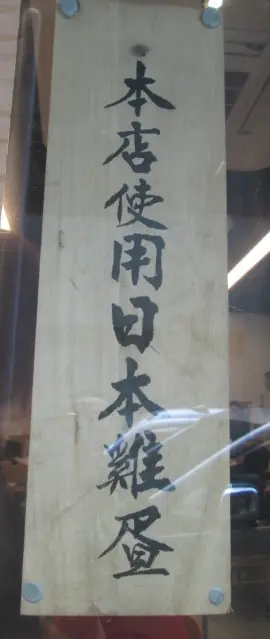 本店使用日本雞蛋